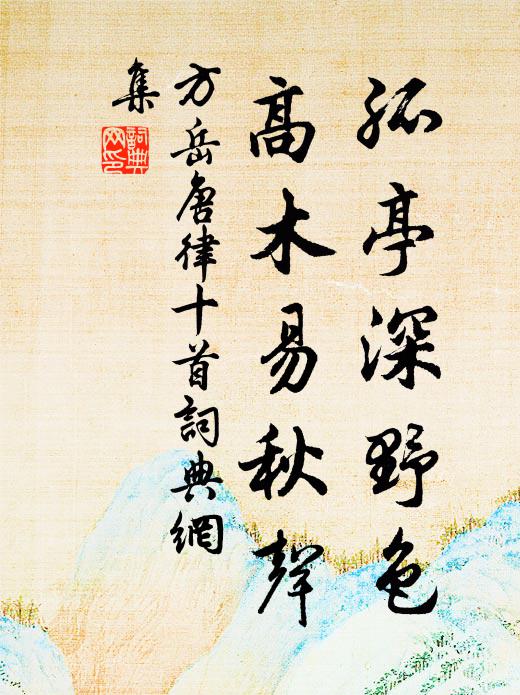 孤亭深野色
高木易秋聲
方岳唐律十首詞典網
集
詞典網印